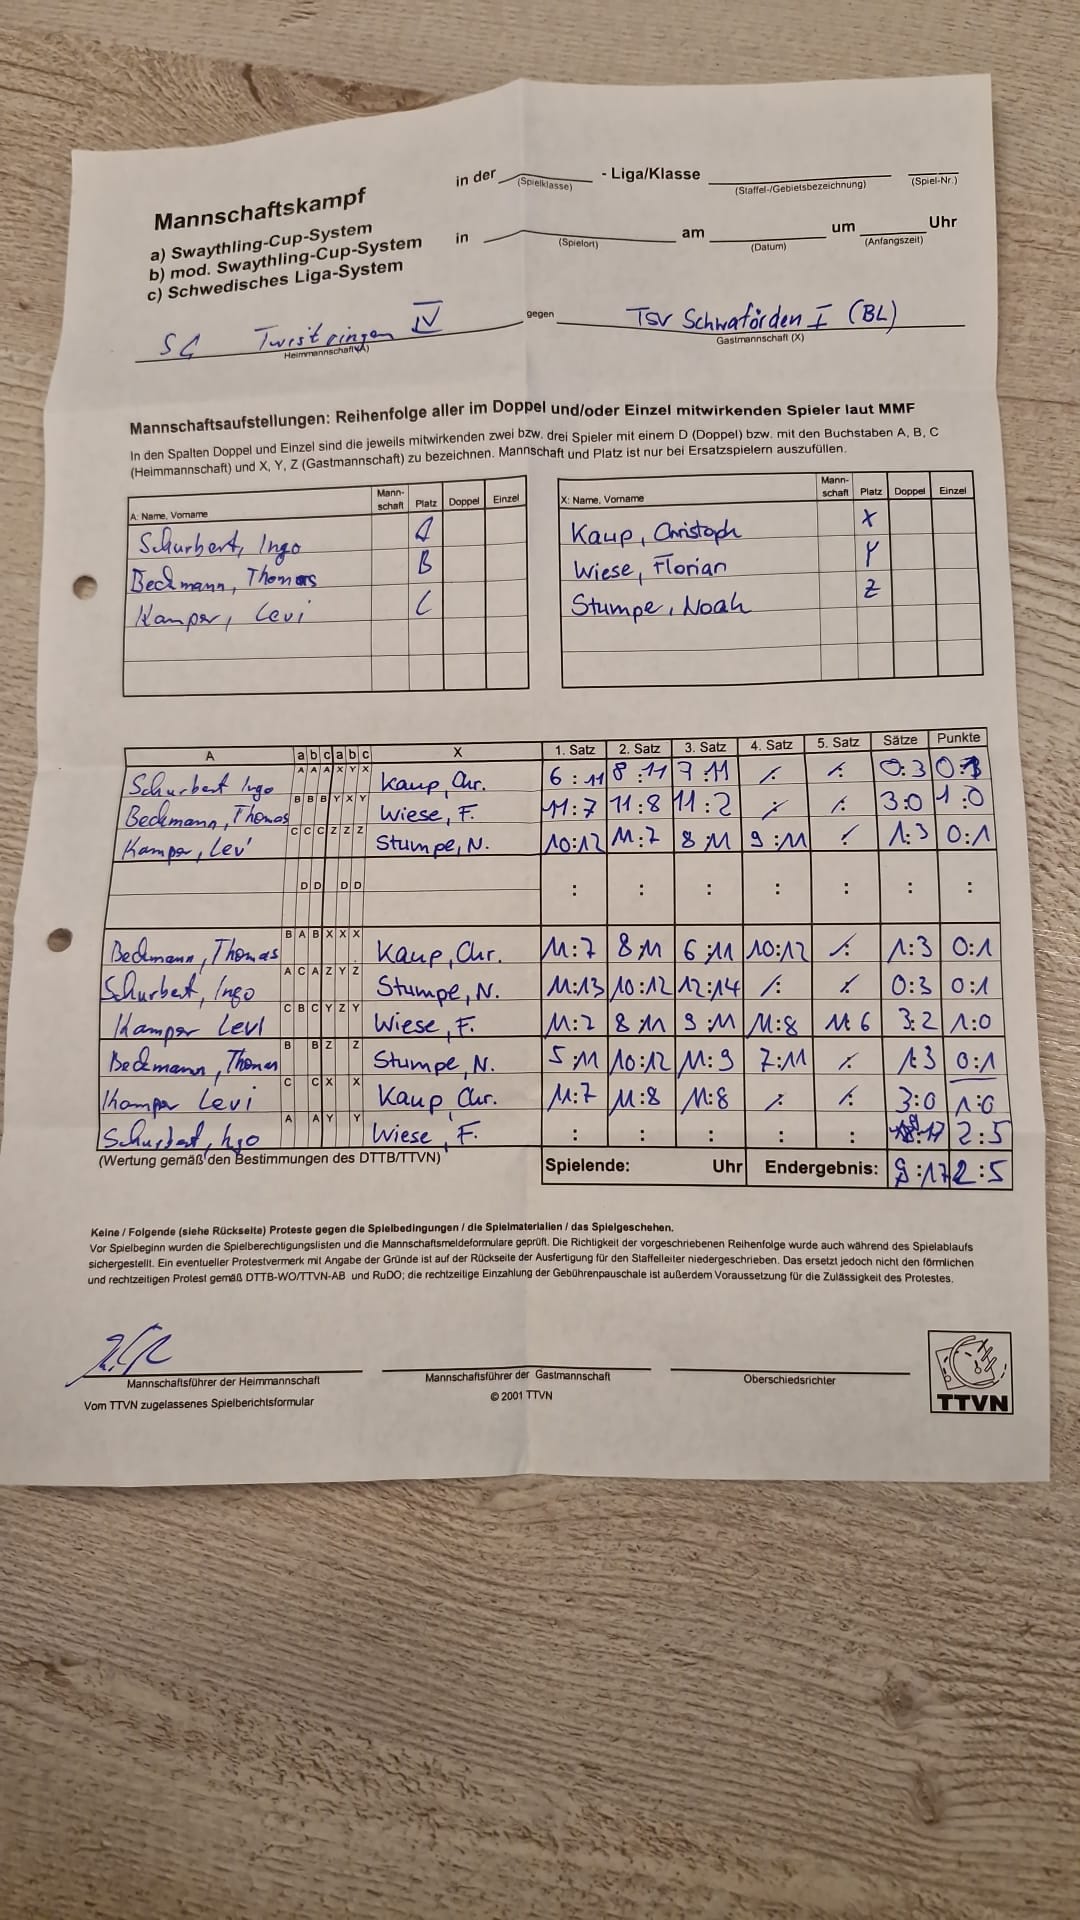 Mannschaftskampf in der (Spielklasse) - Liga/Klasse (Staffel-/Gebietsbezeichnung) (Spiel-Nr.)
a) Swaythling-Cup-System
b) mod. Swaythling-Cup-System
c) Schwedisches Liga-System
in (Spielort) am (Datum) um (Anfangszeit) Uhr
SC Twistringen IV gegen TSV Schwaförden I (BL)
Heimmannschaft (A) Gastmannschaft (X)
Mannschaftsaufstellungen: Reihenfolge aller im Doppel und/oder Einzel mitwirkenden Spieler laut MMF
In den Spalten Doppel und Einzel sind die jeweils mitwirkenden zwei bzw. drei Spieler mit einem D (Doppel) bzw. mit den Buchstaben A, B, C
(Heimmannschaft) und X, Y, Z (Gastmannschaft) zu bezeichnen. Mannschaft und Platz ist nur bei Ersatzspielern auszufüllen.
A: Name, Vorname Mann-schaft Platz Doppel Einzel X: Name, Vorname Mann-schaft Platz Doppel Einzel
Schurbert, Ingo A Kaup, Christoph X
Beckmann, Thomas B Wiese, Florian Y
Kamper, Levi C Stumpe, Noah Z
A a b c a b c X 1. Satz 2. Satz 3. Satz 4. Satz 5. Satz Sätze Punkte
Schurbert Ingo A A A X Y X Kaup, Chr. 6 : 11 8 : 11 7 : 11 : : 0:3 0:1
Beckmann, Thomas B B B Y X Y Wiese, F. 11:7 11:8 11:2 : : 3:0 1:0
Kamper, Levi C C C Z Z Z Stumpe, N. 10:12 11:7 8:11 9:11 : 1:3 0:1
D D D D : : : : : : :
Beckmann, Thomas B A B X X X Kaup, Chr. 11:7 8:11 6:11 10:12 : 1:3 0:1
Schurbert, Ingo A C A Z Y Z Stumpe, N. 11:13 10:12 12:14 : : 0:3 0:1
Kamper Levi C B C Y Z Y Wiese, F. 11:2 8:11 9:11 11:8 11:6 3:2 1:0
Beckmann, Thomas B B Z Z Stumpe, N. 5:11 10:12 11:9 7:11 : 1:3 0:1
Kamper Levi C C X X Kaup, Chr. 11:7 11:8 11:8 : : 3:0 1:0
Schurbert, Ingo A A Y Y Wiese, F. : : : : : :17 2:5
(Wertung gemäß den Bestimmungen des DTTB/TTVN) Spielende: Uhr Endergebnis: 9:17 2:5
Keine / Folgende (siehe Rückseite) Proteste gegen die Spielbedingungen / die Spielmaterialien / das Spielgeschehen.
Vor Spielbeginn wurden die Spielberechtigungslisten und die Mannschaftsmeldeformulare geprüft. Die Richtigkeit der vorgeschriebenen Reihenfolge wurde auch während des Spielablaufs
sichergestellt. Ein eventueller Protestvermerk mit Angabe der Gründe ist auf der Rückseite der Ausfertigung für den Staffelleiter niedergeschrieben. Das ersetzt jedoch nicht den förmlichen
und rechtzeitigen Protest gemäß DTTB-WO/TTVN-AB und RuDO; die rechtzeitige Einzahlung der Gebührenpauschale ist außerdem Voraussetzung für die Zulässigkeit des Protestes.
Mannschaftsführer der Heimmannschaft Mannschaftsführer der Gastmannschaft Oberschiedsrichter
Vom TTVN zugelassenes Spielberichtsformular © 2001 TTVN TTVN